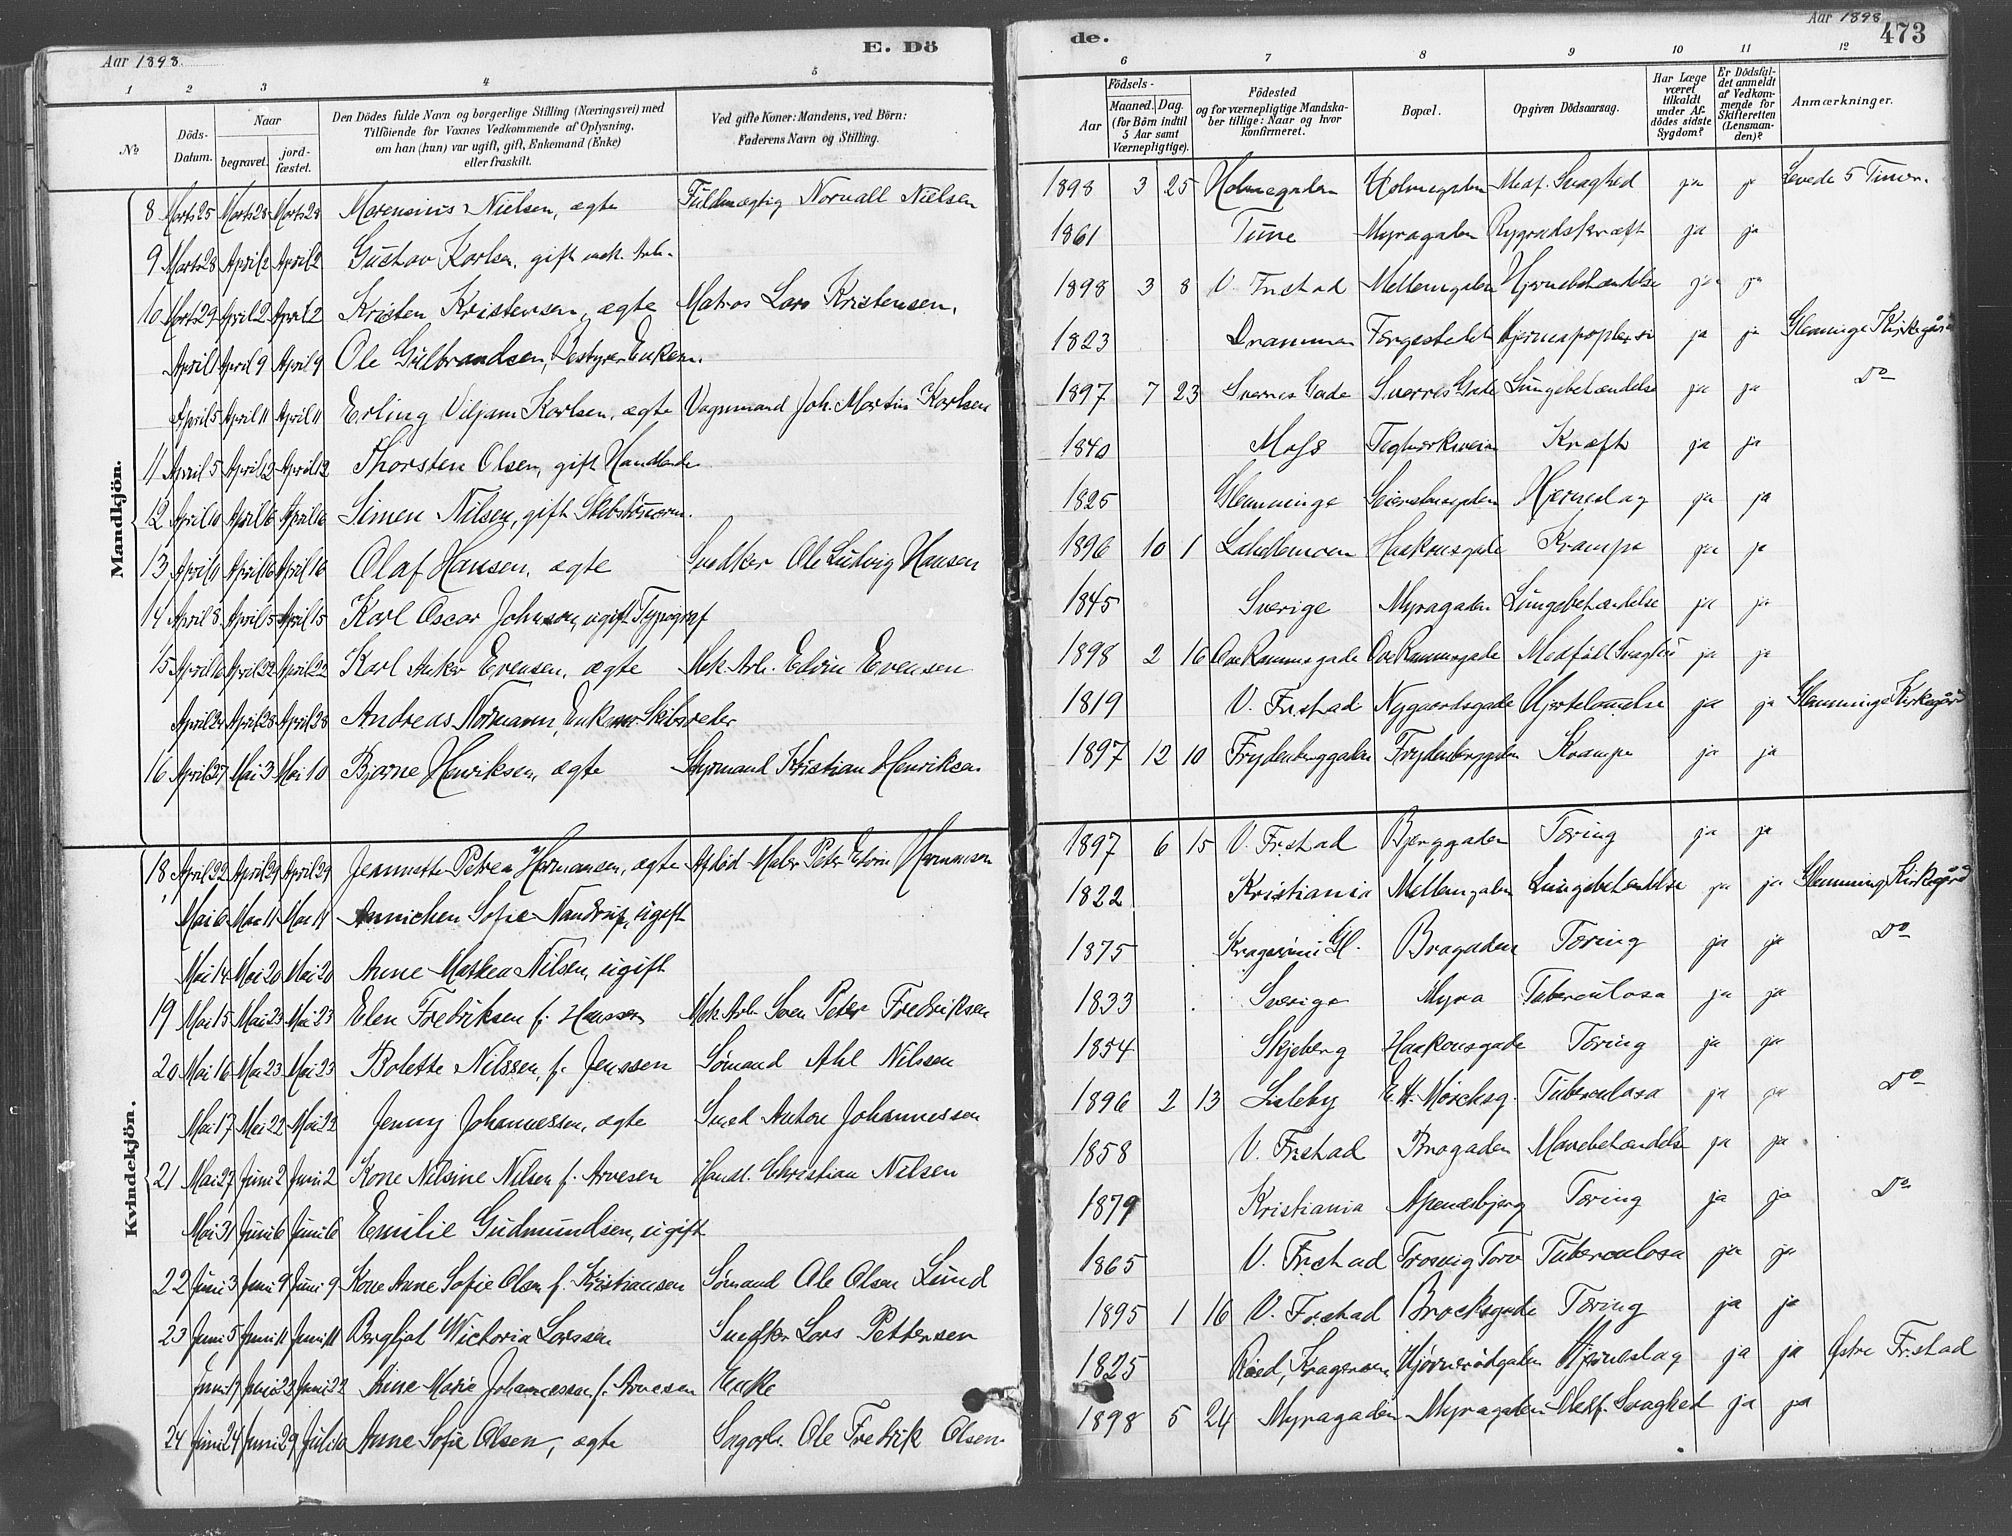 Aar 1898. E. Dö
de. Aar 1898 473
1 2 3 4 5 6 7 8 9 10 11 12
No
Döds-Datum.
Naar
begravet.
jord-fæstet.
Den Dödes fulde Navn og borgerlige Stilling (Næringsvei) med
Tilföiende for Voxnes Vedkommende af Oplysning,
om han (hun) var ugift, gift, Enkemand (Enke)
eller fraskilt.
Ved gifte Koner: Mandens, ved Börn:
Faderens Navn og Stilling.
Födsels-
Aar
Maaned. Dag.
(for Börn indtil
5 Aar samt
Værnepligtige).
Födested
og for værnepligtige Mandska-
ber tillige: Naar og hvor
konfirmeret.
Bopæl.
Opgiven Dödsaarsag.
Har Læge
været
tilkaldt
under Af-
dödes sidste
Sygdom?
Er Dödsfal-
det anmeldt
af Vedkom-
mende for
Skifteretten
(Lensman-
den)?
Anmærkninger.
Mandkjön.
8 Marts 25 Marts 28 Marts 28 Morensius Nielsen, ægte Fuldmægtig Norvall Nielsen 1898 3 25 Holmegaden Holmegaden Medf. Svaghed ja ja Levede 5 Timer.
9 Marts 28 April 2 April 2 Gustav Karlsen, gift mek. Arb. 1861 Tune Myragaden Rygradskræft ja ja
10 Marts 29 April 2 April 2 Kristen Kristensen, ægte Matros Lars Kristensen. 1898 3 8 V. Frstad Mellemgaden Hjernebetændelse ja ja
April 1 April 9 April 9 Ole Gulbrandsen, Enkem. 1823 Drammen Hjerneapoplexi ja ja Glemminge Kirkegård
April 5 April 11 April 11 Erling Viljam Karlsen, ægte Vognmand Joh. Martin Karlsen 1897 7 23 Sverres Gade Sverres Gade Lungebetændelse ja ja Do
11 April 5 April 12 April 12 Thorsten Olsen, gift Handlende 1840 Moss Teglverksveien Kræft ja ja
12 April 10 April 16 April 16 Simen Nilsen, gift Skibstømerm. 1825 Glemminge Hjerneslag ja ja
13 April 11 April 16 April 16 Olaf Hansen, ægte Snedker Ole Ludvig Hansen 1896 10 1 Labellemoen Haakonsgade Krampe ja ja
14 April 8 April 15 April 15 Karl Oscar Johnson, ugift Typograf 1845 Sverige Myragaden Lungebetændelse ja ja
15 April 16 April 22 April 22 Karl Anker Evensen, ægte Mek. Arb. Edvin Evensen 1898 2 16 Ove Rammsgade Ove Rammsgade Medfödt Svaghed ja ja
April 24 April 28 April 28 Andreas Normann, Enkem. Skibsreder 1819 V. Frstad Nygaardsgade Hjertelamelse ja ja Glemminge Kirkegård
16 April 27 Mai 3 Mai 10 Bjarne Henriksen, ægte Styrmand Kristian Henriksen 1897 12 10 Frydenberggaden Frydenberggaden Krampe ja ja
Kvindekjön.
18 April 22 April 29 April 29 Jeannette Petrea Hermansen, ægte Afdöd Maler Peter Edvin Hermansen 1897 6 15 V. Frstad Bjerggaden Tæring ja ja
Mai 6 Mai 11 Mai 11 Annichen Sofie Nandrup, ugift 1822 Kristiania Mellemgaden Lungebetændelse ja ja Glemminge Kirkegård
Mai 14 Mai 20 Mai 20 Anne Mathea Nilsen, ugift 1875 Kragerøni Gl. Brogaden Tæring ja ja Do
19 Mai 15 Mai 23 Mai 23 Elen Fredriksen f. Hanssen Mek. Arb. Sven Peter Fredriksen 1833 Sverige Myra Tuberculosa ja ja
20 Mai 16 Mai 23 Mai 23 Bolette Nilssen, f. Jenssen Sømand Ahl Nilssen 1854 Skjeberg Haakonsgade Tæring ja ja
Mai 17 Mai 22 Mai 22 Jenny Johannessen, ægte Smed Anton Johannessen 1896 2 13 Lisleby E. H. Mörchsg. Tuberculosa ja ja Do
21 Mai 27 Juni 2 Juni 2 Kone Nilsine Nilsen f. Arvesen Handl. Christian Nilsen 1858 V. Frstad Brogaden Mavebetændelse ja ja
Mai 31 Juni 6 Juni 6 Emilie Gudmundsen, ugift 1879 Kristiania Apenesbjerg Tæring ja ja Do
22 Juni 3 Juni 9 Juni 9 Kone Anne Sofie Olsen f. Kristiansen Sømand Ole Olsen Lund 1865 V. Frstad Trosvig Torv Tuberculosa ja ja
23 Juni 5 Juni 11 Juni 11 Bergljot Wictoria Larssen Snedker Lars Pettersen 1895 1 16 V. Frstad Brocksgade Tæring ja ja
Juni 17 Juni 22 Juni 22 Anne Marie Johannessen f. Arvesen Enke 1825 Röed, Kragerøen Hjørnerödgaden Hjerneslag ja ja Østre Frstad
24 Juni 24 Juni 29 Juli 10 Anne Sofie Olsen, ægte Sagarb. Ole Fredrik Olsen 1898 5 24 Myragaden Myragaden Medf. Svaghed ja ja